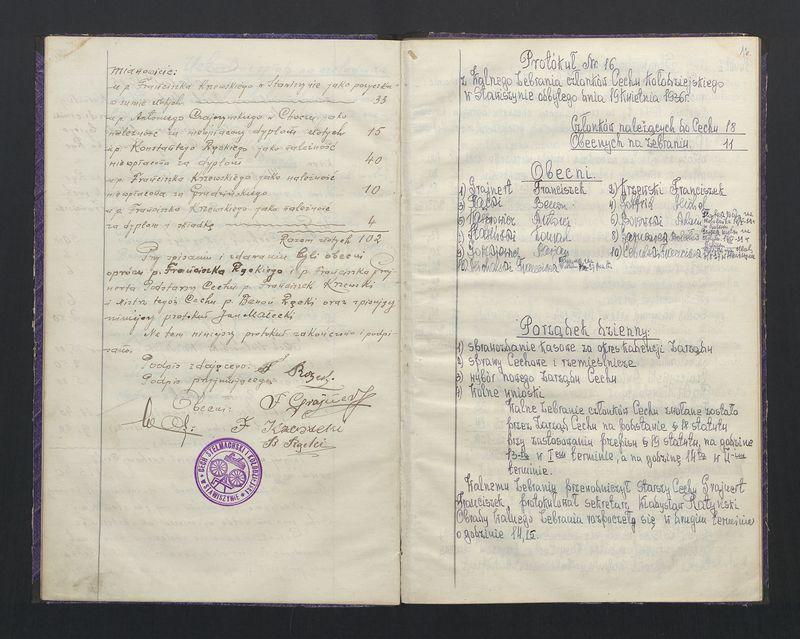 Mianowicie:
u p. Franciszka Krzewskiego w Stawiszynie jako pożyczka
w sumie złotych 33
u p. Antoniego w Choczu jako
należność za niewpłacony dyplom złotych 15
u p. Konstantego Ryckiego jako należność
niewpłacona za dyplom 40
u p. Franciszka Krzewskiego jako należność
niewpłacona za 10
u p. Franciszka Krzewskiego jako należność
za dyplom i składkę 4
Razem złotych 102
Przy spisaniu i zdawaniu byli obecni
oprócz p. Franciszka i p. Franciszka Graj-
nerta Podstarszy Cechu p. Franciszek Krzewski
i Mistrz tegoż Cechu p. Benon oraz spisujący
niniejszy protokuł Jan Małecki
Na tem niniejszy protokuł zakończono i podpi-
sano.
Podpis zdającego: F.
Podpis przyjmującego: F Grajnert
Obecni: F Krzewski
CECH STELMACHSKI I KOŁODZIEJSKI
W STAWISZYNIE
Protokuł Nr. 16
z Walnego Zebrania członków Cechu Kołodziejskiego
w Stawiszynie odbytego dnia 19 kwietnia 1936 r.
Członków należących do Cechu 18
Obecnych na zebraniu. 11
Obecni.
1) Grajnert Franciszek 2) Krzewski Franciszek
3) Benon 4)
5) 6) Adam
7) 8)
9) 10) Franciszek
11) Franciszek
Porządek dzienny:
1) sprawozdanie kasowe za okres kadencji Zarządu
2) sprawy Cechowe i rzemieślnicze
3) wybór nowego Zarządu Cechu
4) Wolne wnioski
Walne Zebranie członków Cechu zwołane zostało
przez Zarząd Cechu na podstawie § 18 statutu
przy zastosowaniu przepisu § 19 statutu, na godzinę
13-tą w I-em terminie, a na godzinę 14-tą w II-em
terminie.
Walnemu Zebraniu przewodniczył Starszy Cechu Grajnert
Franciszek, protokułował sekretarz Władysław Ratyński
Obrady Walnego Zebrania rozpoczęły się w drugim terminie
o godzinie 14.15.